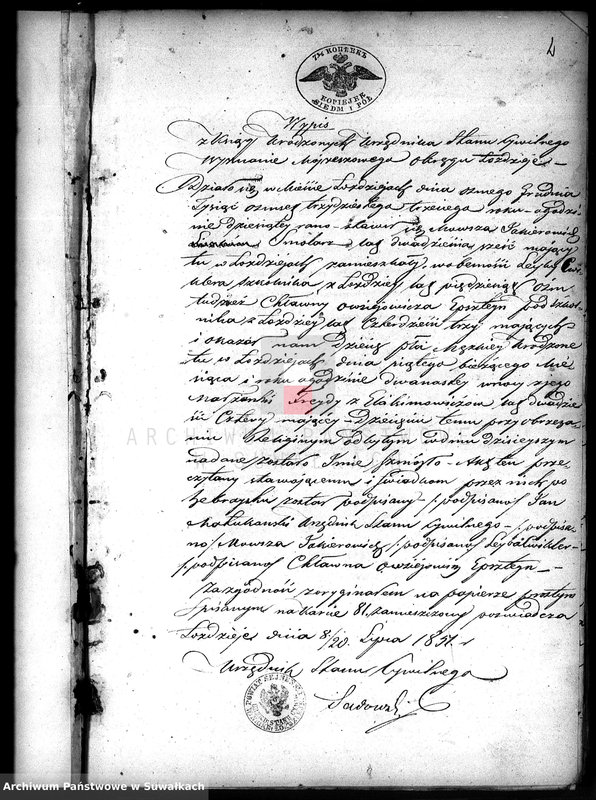 7½ КОПѢЕКЪ
KOPIEJEK
SIEDM I PÓŁ
Wypis
z Księgi Urodzonych Urzędnika Stanu Cywilnego
Wyznanie Mojżeszowego Okręgu Łoździeje
Działo się w Mieście Łoździejach dnia ósmego Grudnia
Tysiąc ośmset trzydziestego trzeciego roku o godzi
nie dziesiątej rano stawił się Mowsza Jakierowicz
Smolarz lat dwadzieścia sześć mający
tu w Łoździejach zamieszkały w obecności Leyby Cwi
klera szkolnika z Łoździej lat pięćdziesiąt ośm
tudzież Chławny Owziejowicza Epsztejn podszkol
nika z Łoździej lat czterdzieści trzy mających
i okazał nam Dziecię płci Męzkiej Urodzone
tu w Łoździejach dnia piątego bieżącego Mie
siąca i roku o godzinie dwunastej w nocy z jego
Małżonki Freydy z Elakimowiczów lat dwadzie
ścia cztery mającej Dziecięciu temu przy obrzeza
niu Religijnym odbytym w dniu dzisiejszym
nadane zostało Imie Szmójło Akt ten prze
czytany stawającemu i świadkom przez nich po
hebrajsku został podpisany /:podpisano/ Jan
Makulianski Urzędnik Stanu Cywilnego /:podpisa
no/ Mowsza Jakierowicz /:podpisano/ Leyba Cwikler
/:podpisano/ Chławna Owziejowicz Epsztejn
Za zgodność z oryginałem na papierze prostym
spisanym na karcie 81 zamieszczony poświadcza
Łoździeje dnia 8/20 Lipca 1851 r
Urzędnik Stanu Cywilnego
Sadowski
ARCHIWUM
Archiwum Państwowe w Suwałkach